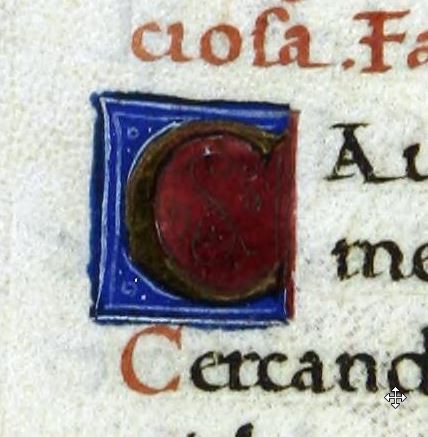 cιoſa. Fa
C Au
me
Cercand